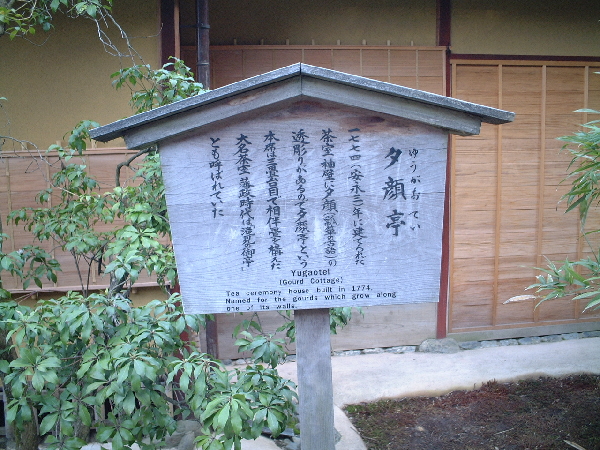 ゆうがおてい
夕顔亭
一七七四(安永三)年に建てられた
茶室、袖壁に夕顔(瓢箪の
透彫りがあるので夕顔亭という
本席は三畳台目で相伴畳を構えた
大名茶室 藩政時代は
とも呼ばれていた
Yugaotei
(Gourd Cottage)
Tea ceremony house built in 1774.
Named for the gourds which grow along
one of its walls.